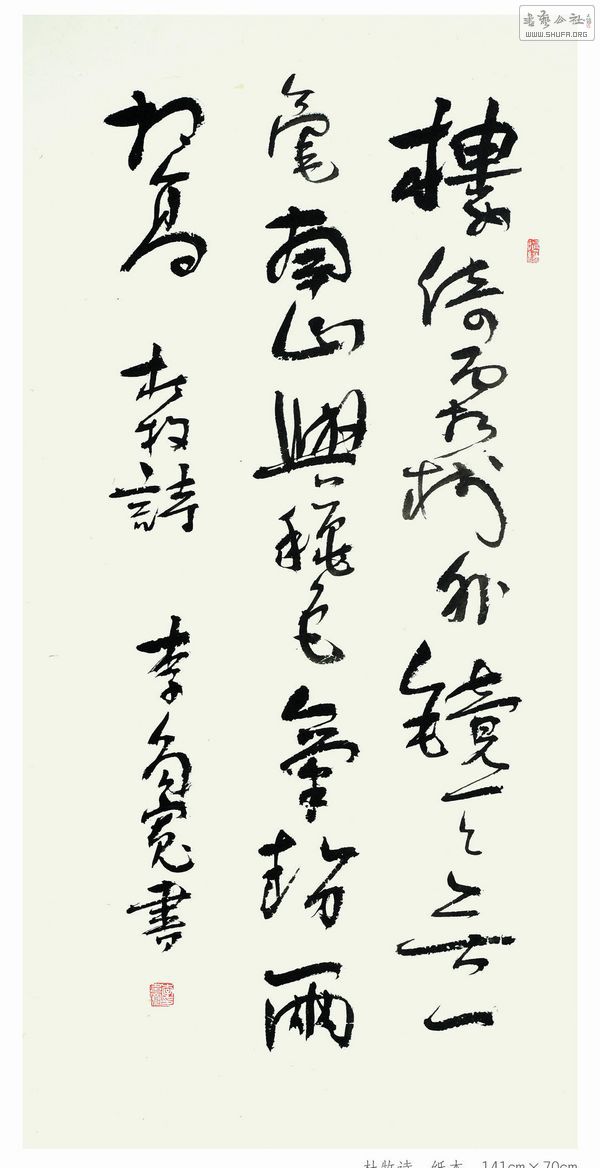 書藝公社
WWW.SHUFA.ORG
樓倚霜樹外鏡天無一
毫南山與穐色氣勢兩
相高 杜牧詩 李寬書
杜牧诗 纸本 141cm×70cm